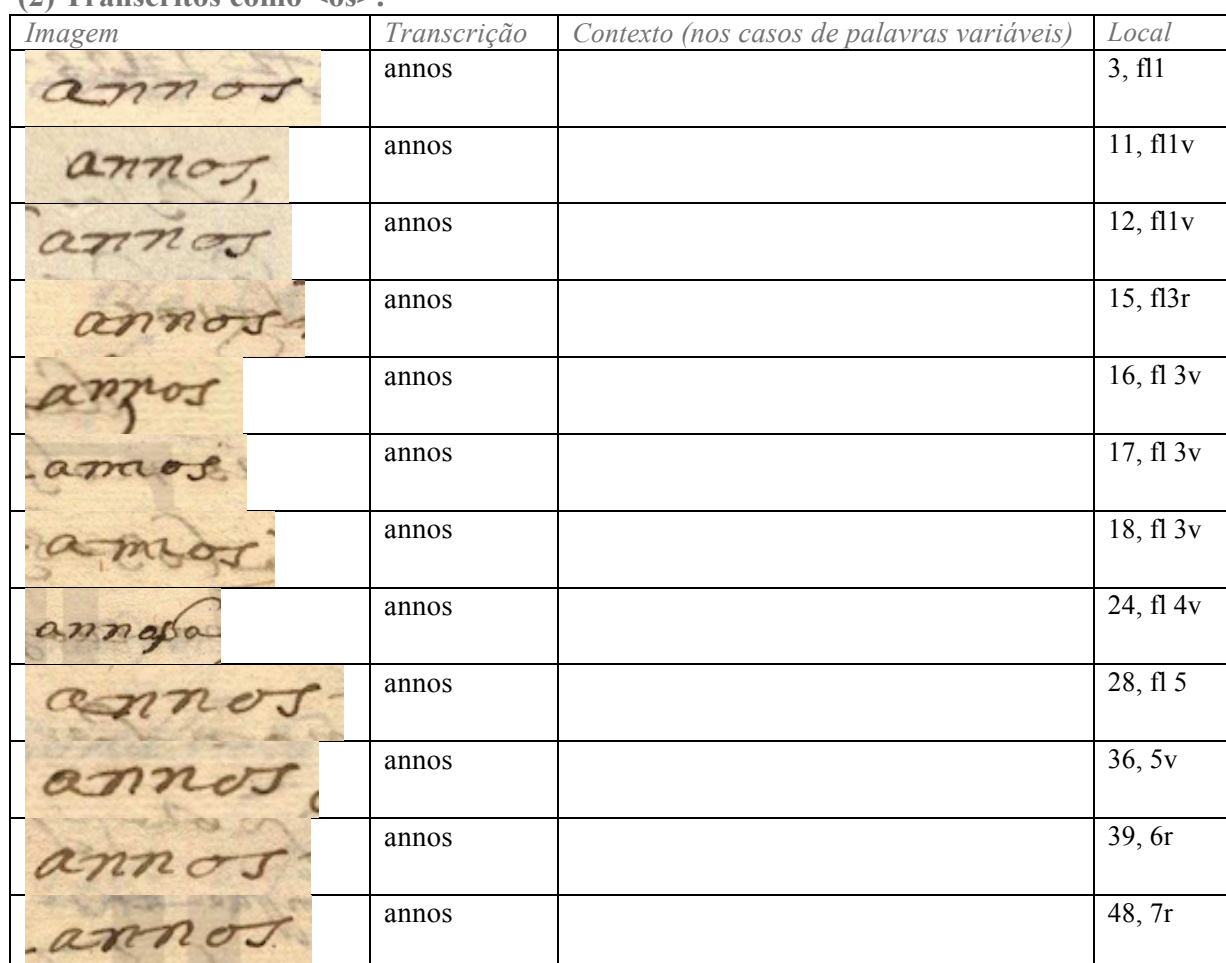 (2) Transcritos como <os>:
Imagem Transcrição Contexto (nos casos de palavras variáveis) Local
annos annos 3, fl1
annos, annos 11, fl1v
annos annos 12, fl1v
annos annos 15, fl3r
annos annos 16, fl 3v
annos annos 17, fl 3v
annos annos 18, fl 3v
annos annos 24, fl 4v
annos annos 28, fl 5
annos annos 36, 5v
annos annos 39, 6r
annos annos 48, 7r